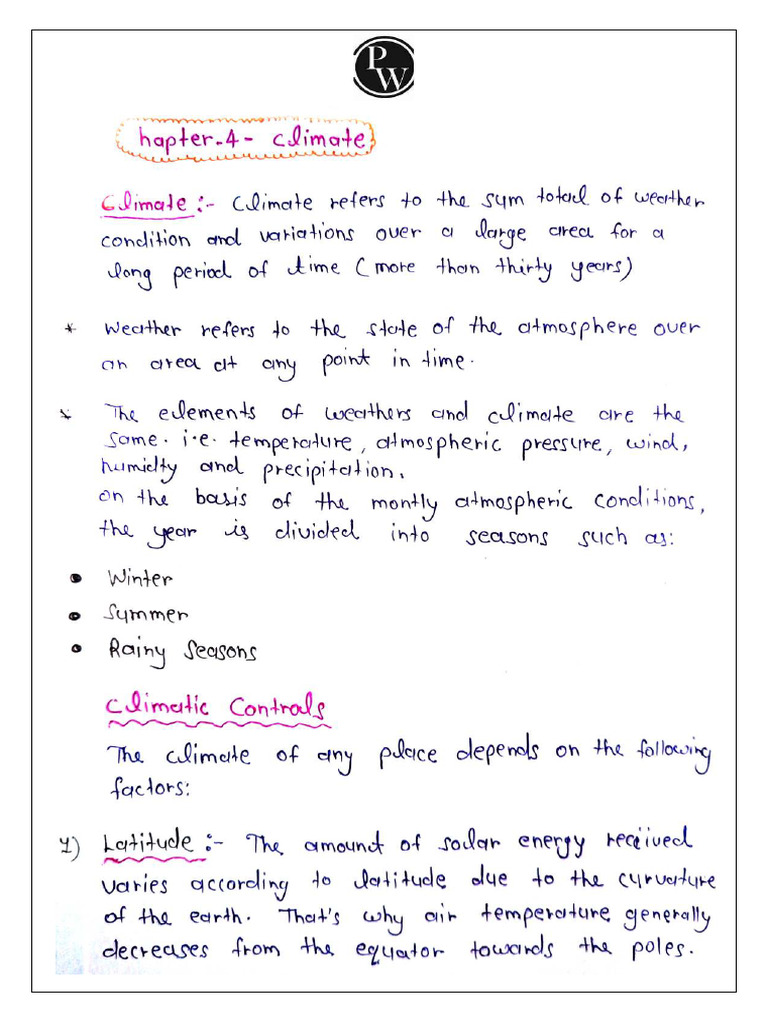 PW
hapter.4- Climate
Climate :- Climate refers to the sum total of weather
condition and variations over a large area for a
long period of time (more than thirty years)
* Weather refers to the state of the atmosphere over
an area at any point in time.
* The elements of weathers and climate are the
same. i.e. temperature, atmospheric pressure, wind,
humidty and precipitation.
on the basis of the montly atmospheric conditions,
the year is divided into seasons such as:
• Winter
• Summer
• Rainy Seasons
Climatic Controls
The climate of any place depends on the following
factors:
1) Latitude :- The amount of solar energy received
varies according to latitude due to the curvature
of the earth. That's why air temperature generally
decreases from the equator towards the poles.